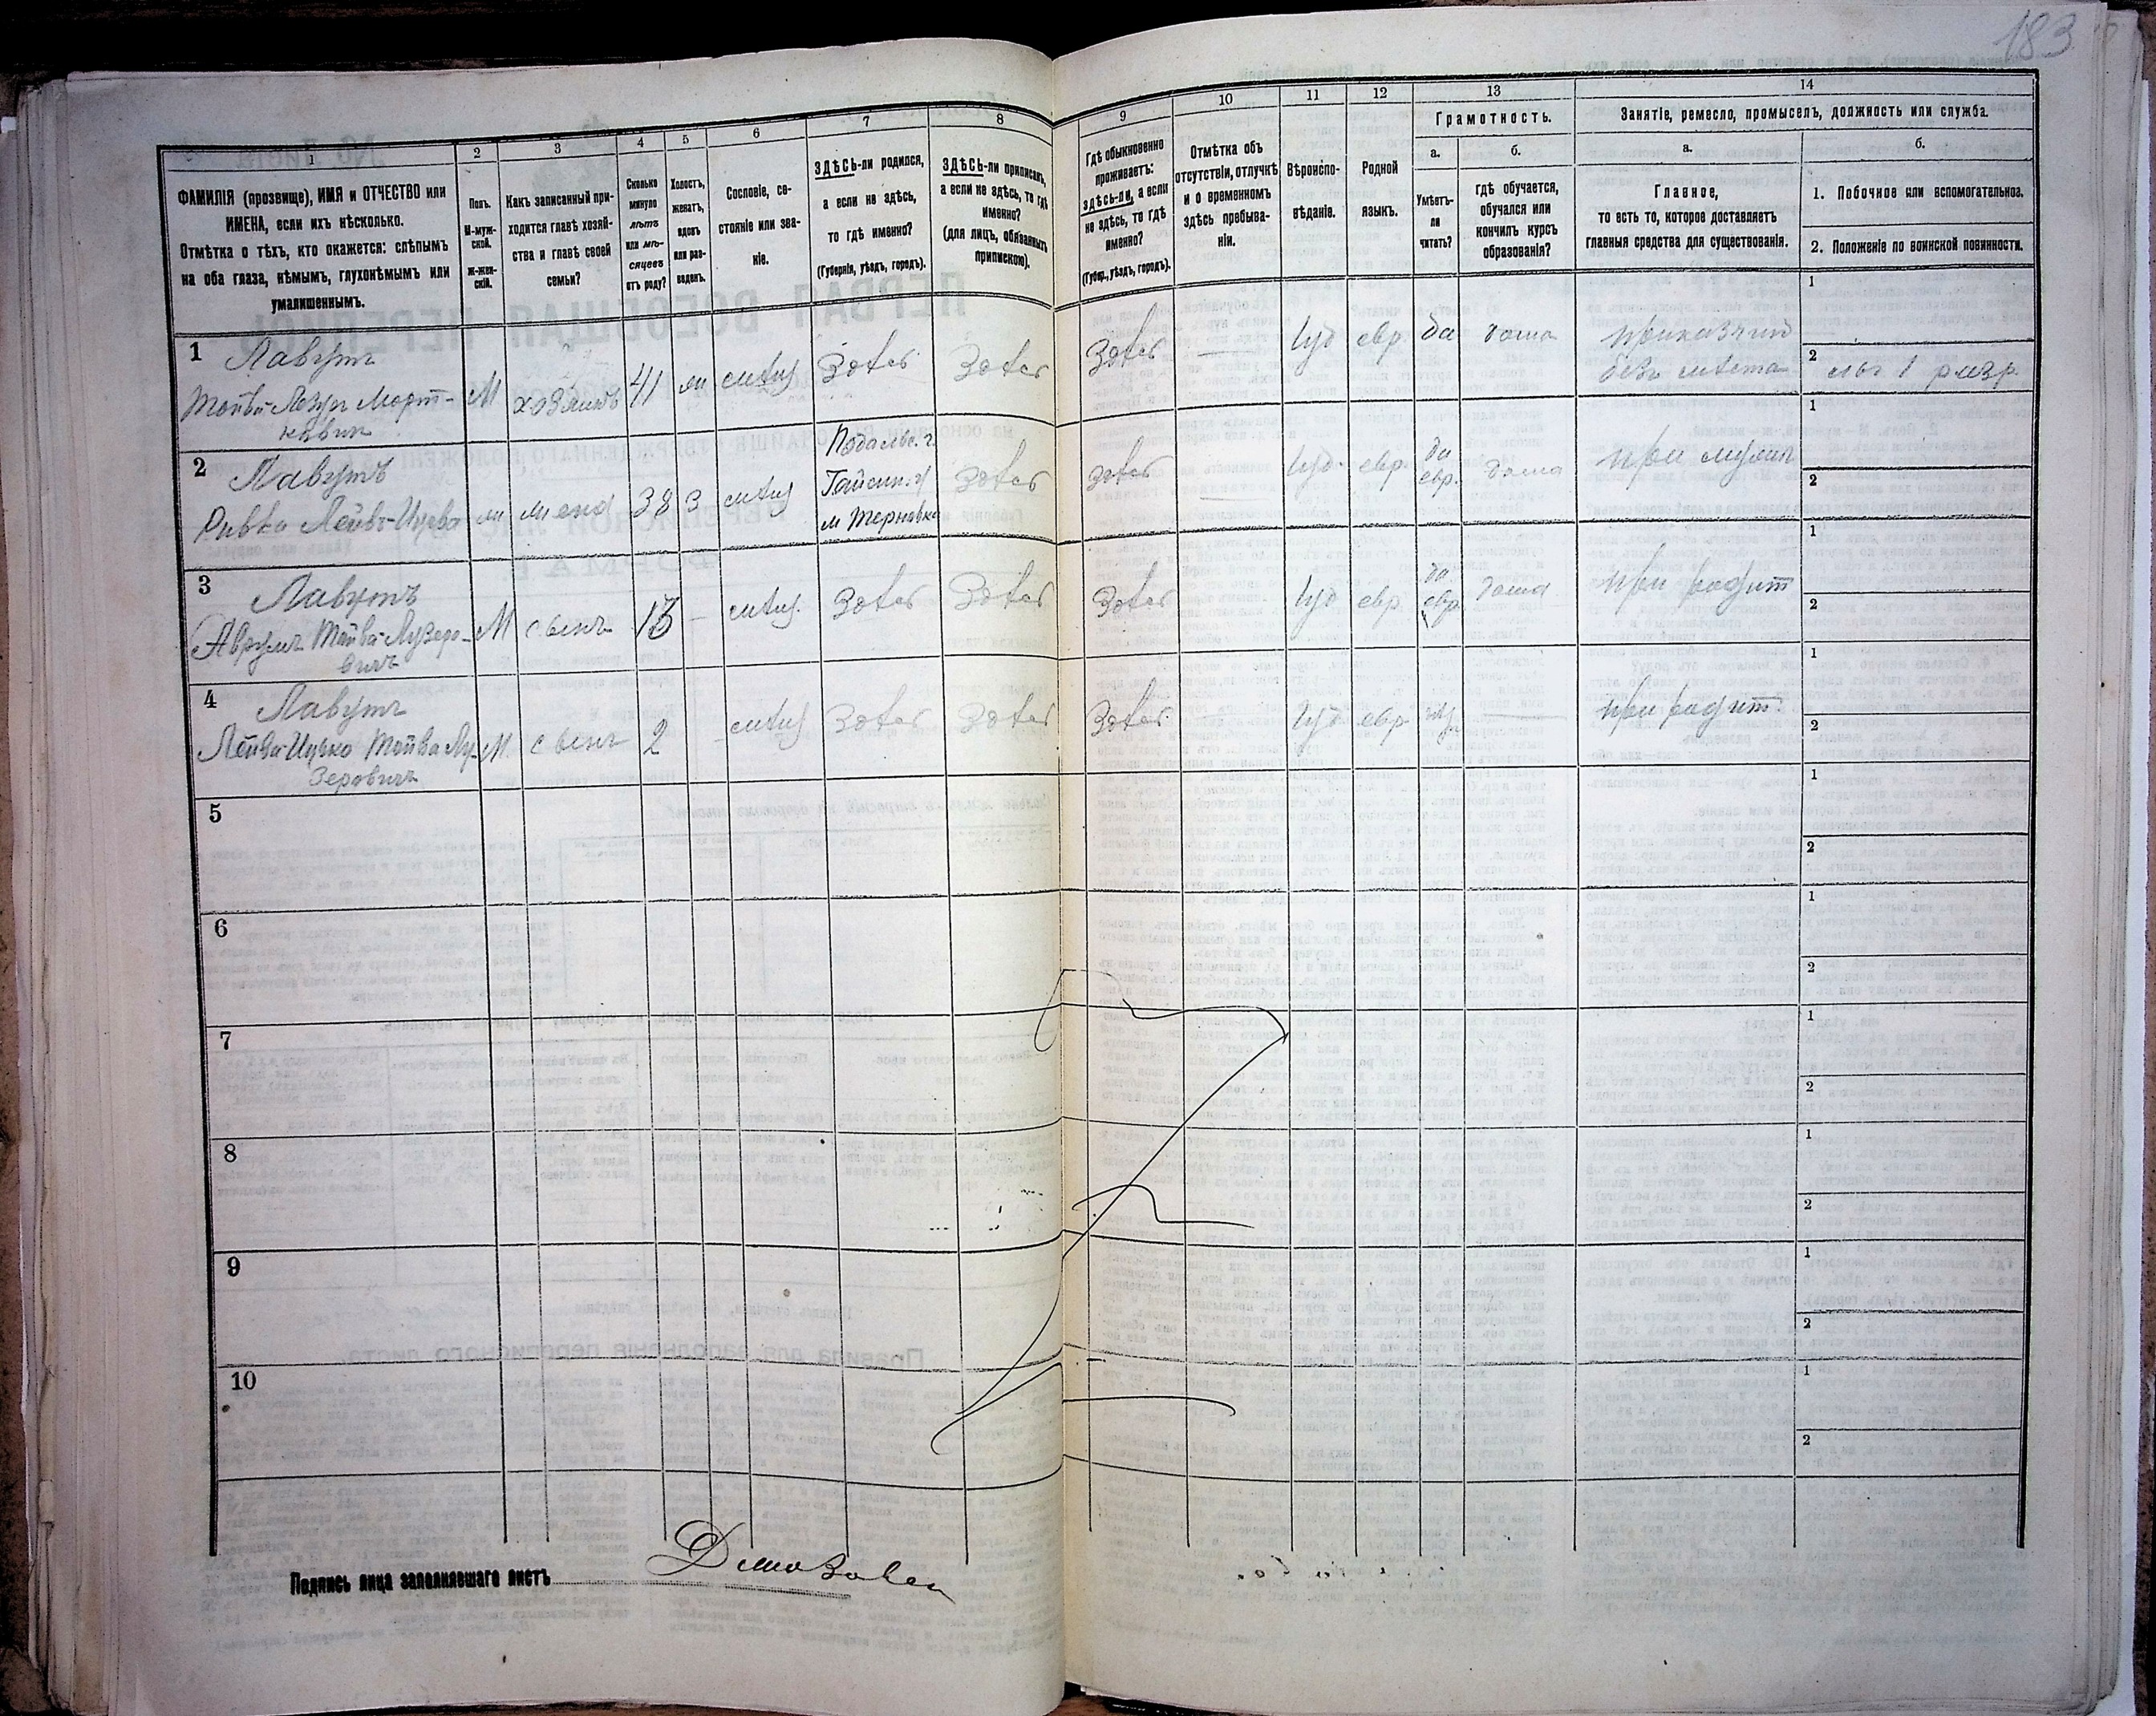 183
1
ФАМИЛІЯ (прозвище), ИМЯ и ОТЧЕСТВО или
ИМЕНА, если ихъ нѣсколько.
Отмѣтка о тѣхъ, кто окажется: слѣпымъ
на оба глаза, нѣмымъ, глухонѣмымъ или
умалишеннымъ.
2
Полъ.
М-муж-
ской.
ж-жен-
скій.
3
Какъ записанный при-
ходится главѣ хозяй-
ства и главѣ своей
семьи?
4
Сколько
минуло
лѣтъ
или мѣ-
сяцевъ
отъ роду?
5
Холостъ,
женатъ,
вдовъ
или раз-
веденъ.
6
Сословіе, со-
стояніе или зва-
ніе.
7
ЗДѢСЬ-ли родился,
а если не здѣсь,
то гдѣ именно?
(Губернія, уѣздъ, городъ).
8
ЗДѢСЬ-ли приписанъ,
а если не здѣсь, то гдѣ
именно?
(для лицъ, обязанныхъ
припискою).
9
Гдѣ обыкновенно
проживаетъ:
здѣсь-ли, а если
не здѣсь, то гдѣ
именно?
(Губер., уѣздъ, городъ).
10
Отмѣтка объ
отсутствіи, отлучкѣ
и о временномъ
здѣсь пребыва-
ніи.
11
Вѣроиспо-
вѣданіе.
12
Родной
языкъ.
13
Грамотность.
а.
Умѣетъ-
ли
читать?
б.
гдѣ обучается,
обучался или
кончилъ курсъ
образованія?
14
Занятіе, ремесло, промыселъ, должность или служба.
а.
Главное,
то есть то, которое доставляетъ
главныя средства для существованія.
б.
1. Побочное или вспомогательное.
2. Положеніе по воинской повинности.
1
Лавутъ
М
хозяинъ
41
Здѣсь
Здѣсь
Здѣсь
Іуд
евр
да
дома
приказчик
без мѣста
1
2
1 разр.
2
Лавутъ
Ривка
жена
38
З
Подольс. г.
Гайсин. у
м Терновка
Здѣсь
Здѣсь
Іуд.
евр.
да
евр.
дома
при мужѣ
1
2
3
Лавутъ
Аврумъ
М
сынъ
13
Здѣсь
Здѣсь
Здѣсь
Іуд
евр.
да
евр
дома
при родит
1
2
4
Лавутъ
М.
сынъ
2
Здѣсь
Здѣсь
Здѣсь
Іуд
евр
при родит.
1
2
5
1
2
6
1
2
7
1
2
8
1
2
9
1
2
10
1
2
Подпись лица заполнявшаго листъ